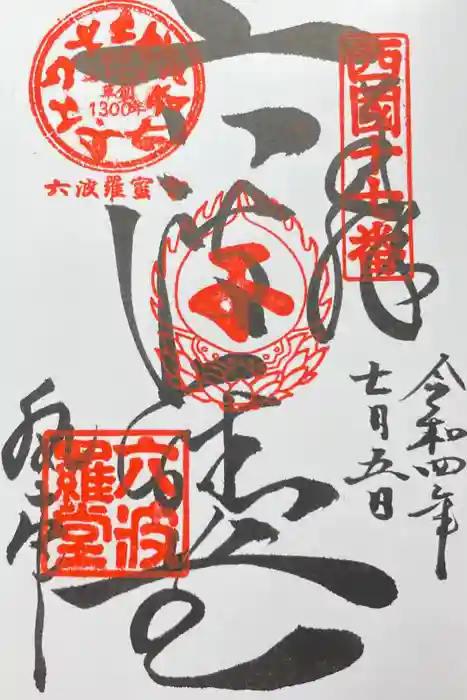 西國十七番
草創
1300年
六波羅蜜
六波羅堂
令和四年
七月五日
六波羅堂